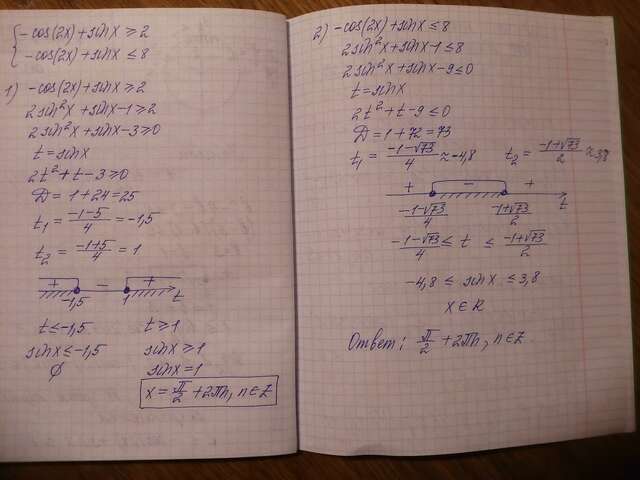 { -cos(2x)+sinx ≥ 2
-cos(2x)+sinx ≤ 8
1) -cos(2x)+sinx ≥ 2
2sin²x+sinx-1 ≥ 2
2sin²x+sinx-3 ≥ 0
t=sinx
2t²+t-3 ≥ 0
D=1+24=25
t₁ = (-1-5)/4 = -1,5
t₂ = (-1+5)/4 = 1
+ - +
-1,5 1 t
t ≤ -1,5 t ≥ 1
sinx ≤ -1,5 sinx ≥ 1
∅ sinx = 1
x = π/2 + 2πn, n∈Z
2) -cos(2x)+sinx ≤ 8
2sin²x+sinx-1 ≤ 8
2sin²x+sinx-9 ≤ 0
t=sinx
2t²+t-9 ≤ 0
D=1+72=73
t₁ = (-1-√73)/4 ≈ -4,8 t₂ = (-1+√73)/2 ≈ 3,8
+ - +
(-1-√73)/4 (-1+√73)/2 t
(-1-√73)/4 ≤ t ≤ (-1+√73)/2
-4,8 ≤ sinx ≤ 3,8
x∈R
Ответ: π/2 + 2πn, n∈Z.